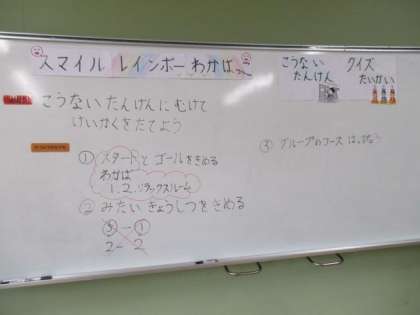 スマイル レインボー わかば
こうない たんけん クイズ たいかい
こうない たんけんに むけて
けいかくを たてよう
① スタートと ゴールを きめる
わかば
1.2. リラックスルーム
② みたい きょうしつを きめる
③ー①
2ー2
③ グループの コースは、